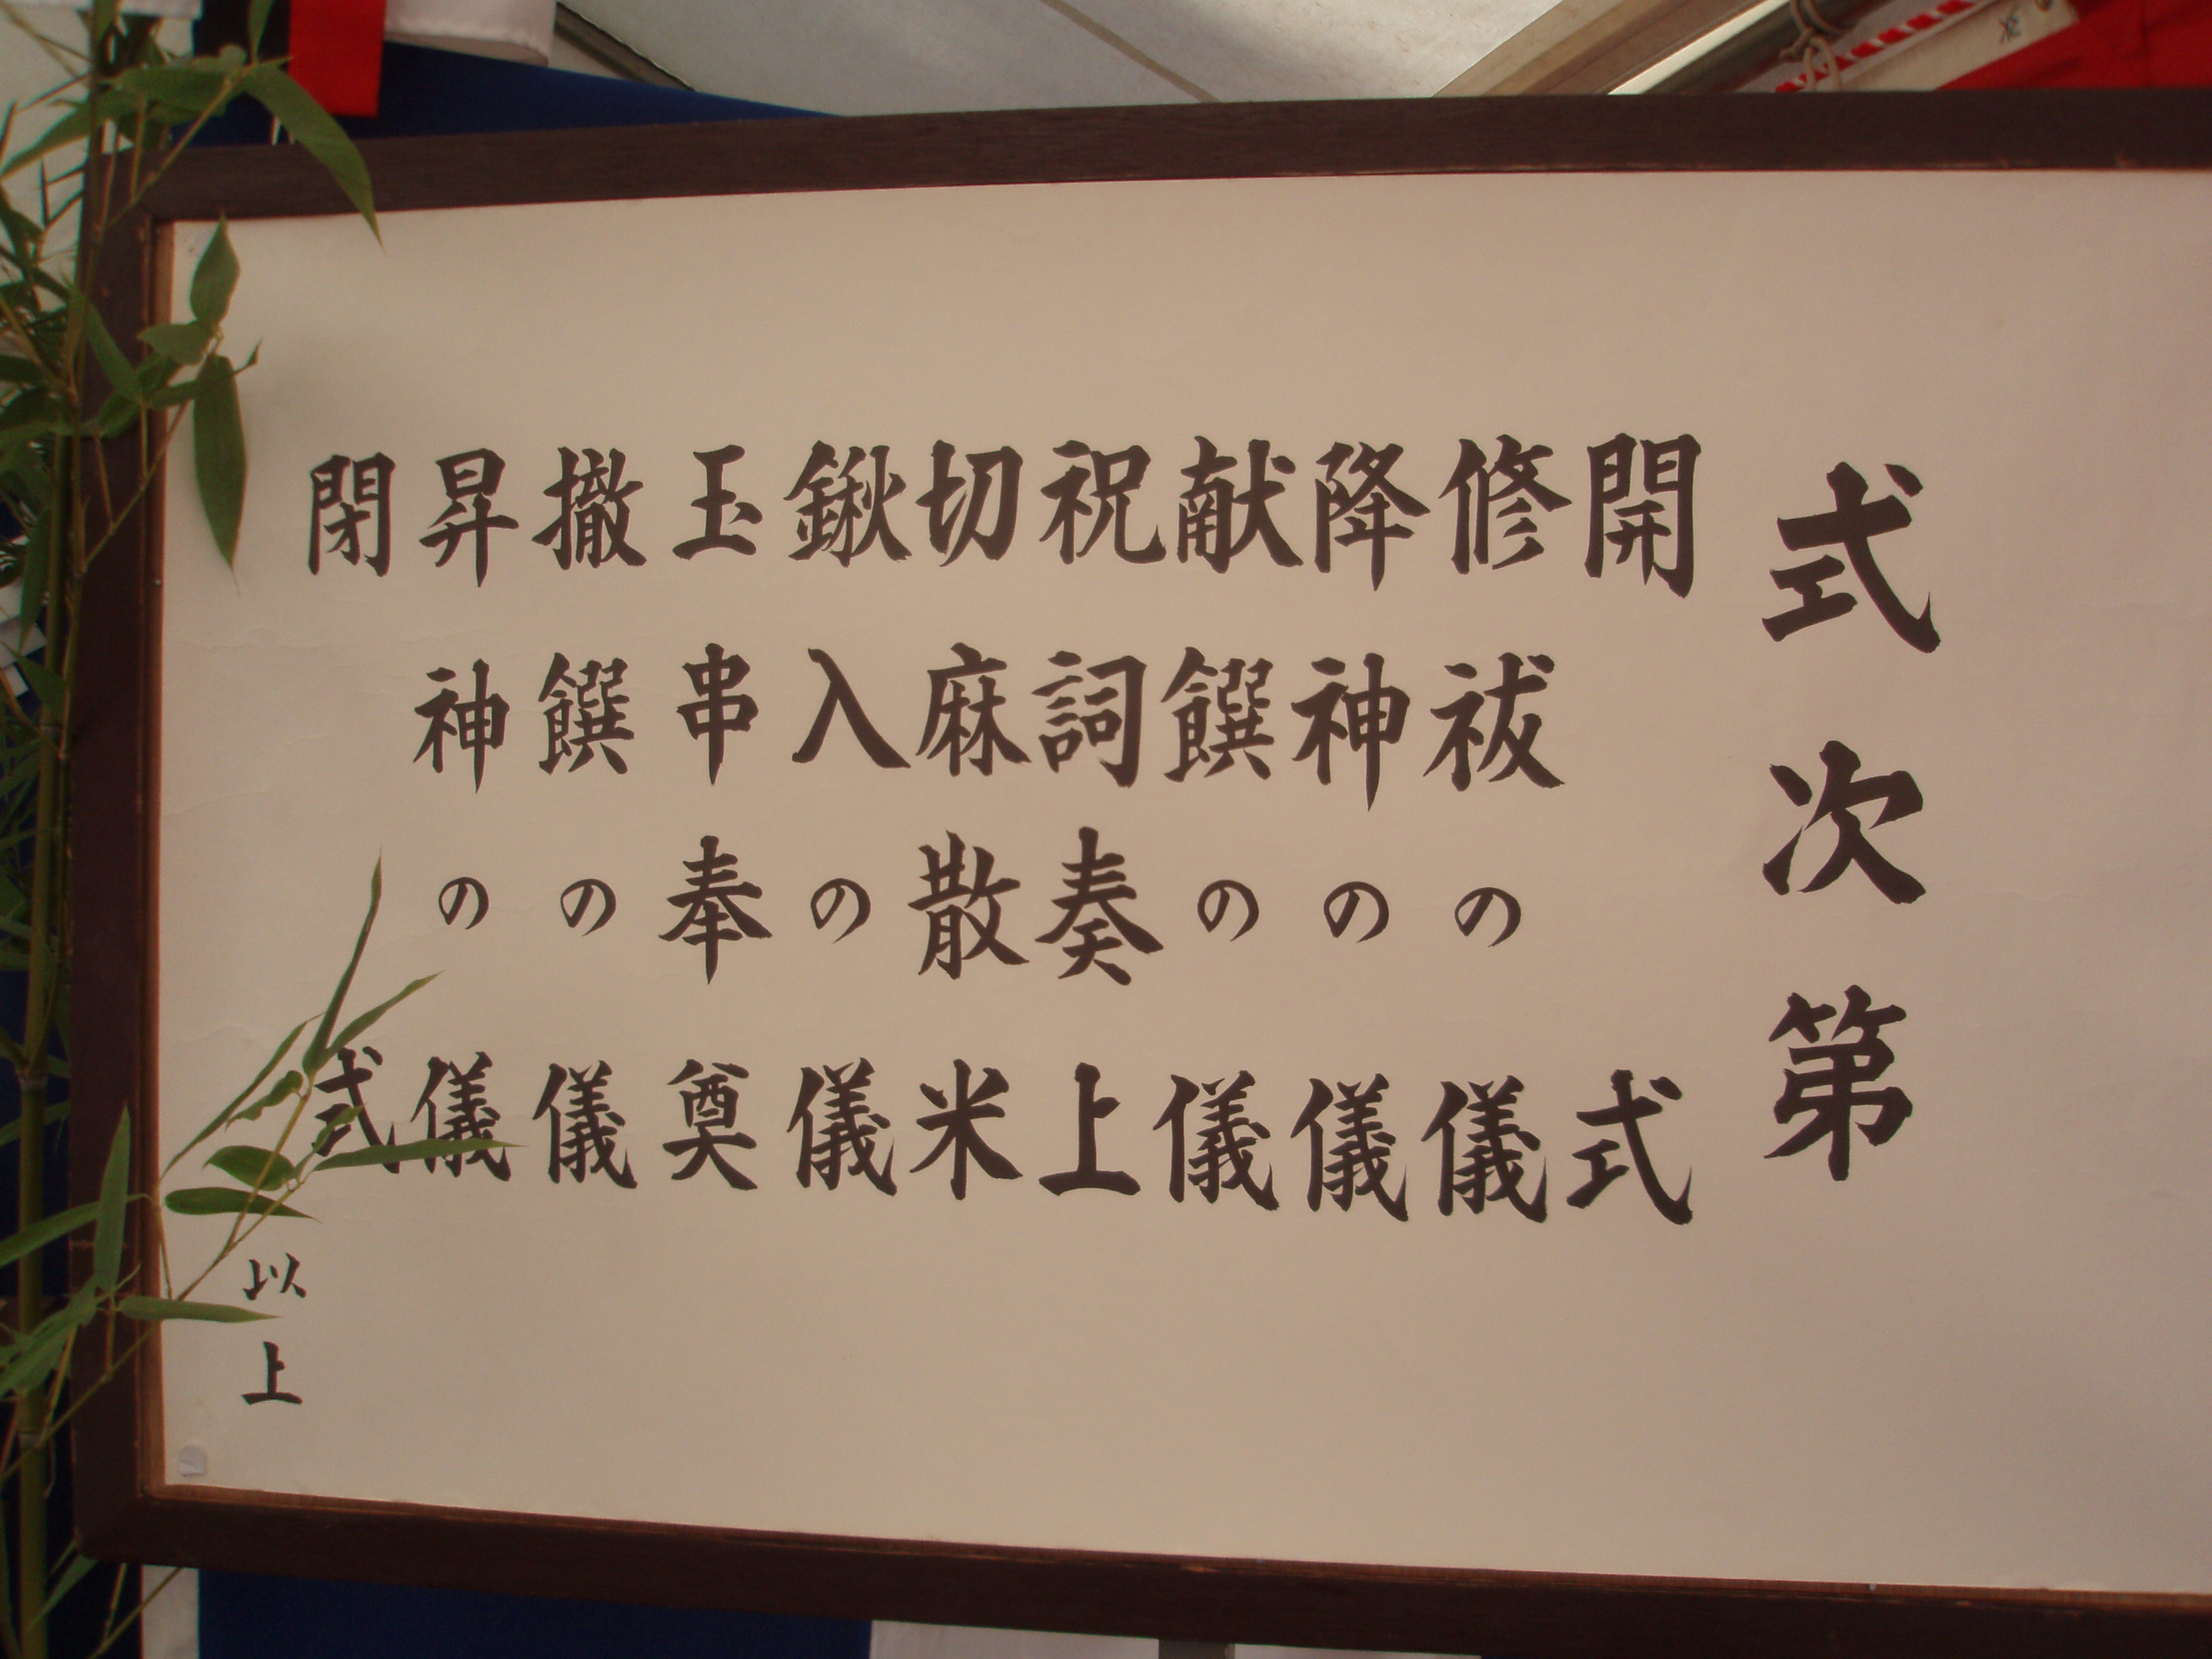 式次第
開式
修祓の儀
降神の儀
献饌の儀
祝詞奏上
切麻散米
鍬入の儀
玉串奉奠
撤饌の儀
昇神の儀
閉式
以上